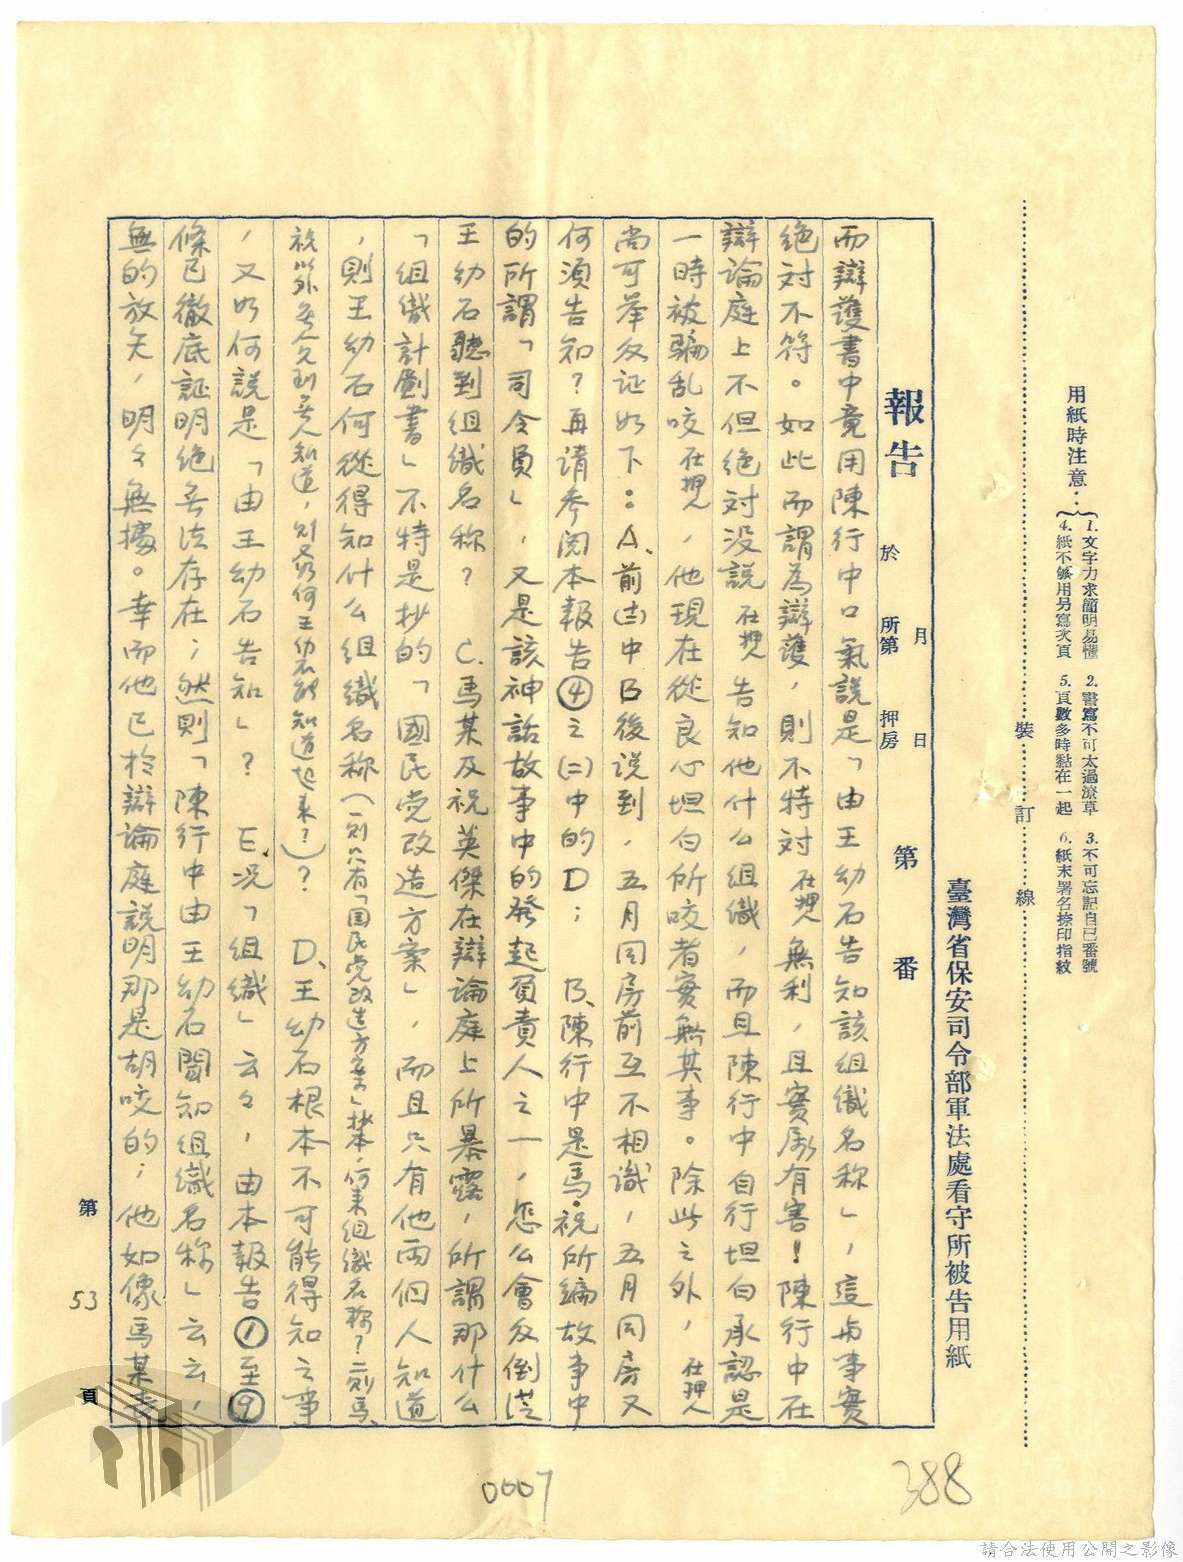 用紙時注意：
1.文字力求簡明易懂　2.書寫不可太過潦草　3.不可忘記自己番號
4.紙不够用另寫次頁　5.頁數多時黏在一起　6.紙末署名捺印指紋
裝訂線
臺灣省保安司令部軍法處看守所被告用紙
報告　於　月　日
所第　押房　第　番
而辯護書中竟用陳行中口氣說是「由王幼石告知該組織名称」，這与事实
絕对不符。如此而謂為辯護，則不特对在押人無利，且实屬有害！陳行中在
辯論庭上不但绝对没説在押人告知他什么組織，而且陳行中自行坦白承認是
一時被騙乱咬在押人，他現在從良心坦白所咬者实無其事。除此之外，在押人
尚可举反证如下：A、前(十二)中B後说到，五月同房前互不相識，五月同房又
何須告知？再請参阅本報告④之(二)中的D；　B、陳行中是馬.祝所编故事中
的所謂「司令員」，又是該神話故事中的發起負責人之一，怎么會反倒從
王幼石聽到組織名称？　C.馬某及祝英傑在辯論庭上所暴露，所謂那什么
「組織計劃書」不特是抄的「國民党改造方案」，而且只有他両個人知道
，則王幼石何從得知什么組織名称（一則只有「国民党改造方案」抄本，何来組織名称？二則馬、
祝以外無人見到無人知道，則又何王幼石能知道起来？）？　D、王幼石根本不可能得知之事
，又如何說是「由王幼石告知」？　E.况「組織」云々，由本報告①至⑨
條已徹底証明绝無法存在；然則「陳行中由王幼石聞知組織名称」云云，
無的放矢，明々無據。幸而他已於辯論庭說明那是胡咬的；他如像馬某
第 53 頁
0007
388
請合法使用公開之影像